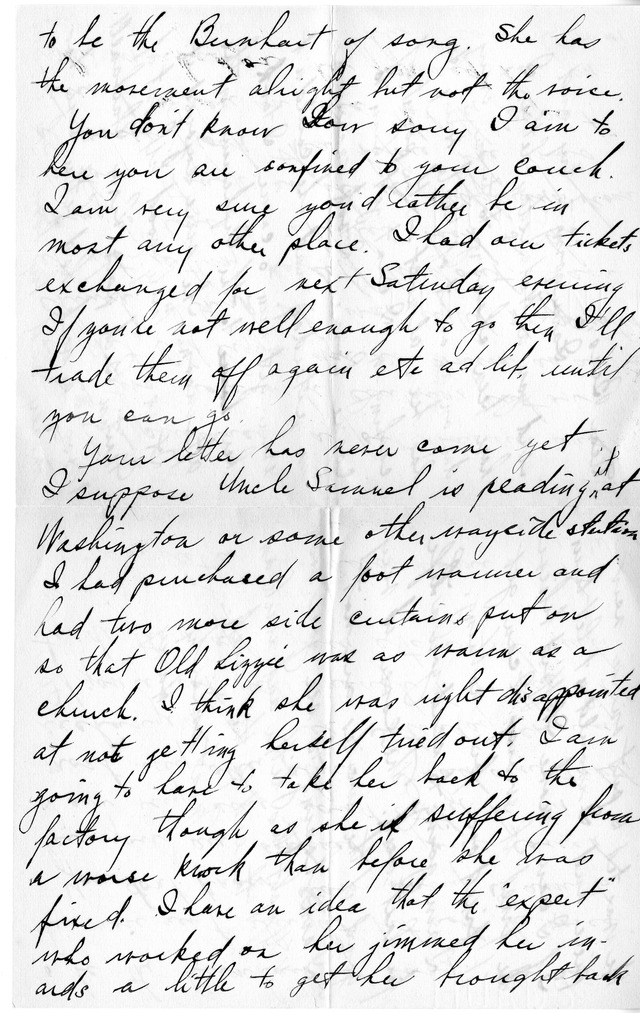 to be the Burnhart of song. She has
the movement alright but not the voice.
You don't know how sorry I am to
here you are confined to your couch.
I am very sure you'd rather be in
most any other place. I had our tickets
exchanged for next Saturday evening
If you're not well enough to go then I'll
trade them off again etc ad lib. until
you can go.
Your letter has never come yet
I suppose Uncle Samuel is reading it at
Washington or some other wayside station
I had purchased a foot warmer and
had two more side curtains put on
so that Old Lizzie was as warm as a
church. I think she was right disappointed
at not getting herself tried out. I am
going to have to take her back to the
factory though as she is suffering from
a worse knock than before she was
fixed. I have an idea that the "expert"
who worked on her jimmed her in-
ards a little to get her brought back